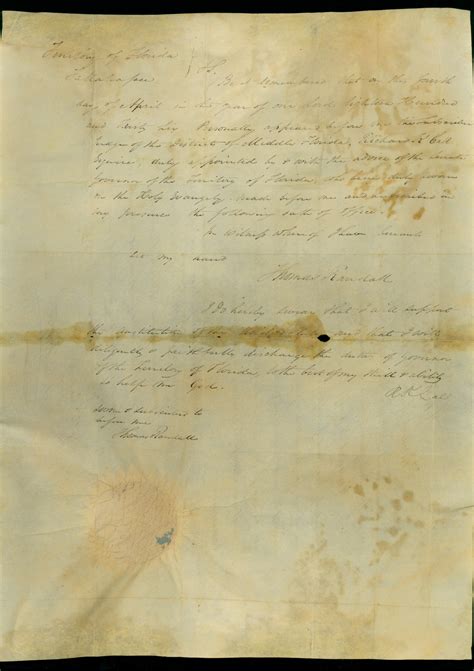 Territory of Florida
Tallahassee } SS. Be it remembered that on the fourth
day of April in the year of our Lord Eighteen Hundred
and thirty Six Personally appeared before me the
Judge of the District of Middle Florida, Richard K Call
Esquire, duly appointed by & with the advice of the senate
Governor of the Territory of Florida, who being duly sworn
on the Holy Evangely made before me and in
my presence the following oath of office.
In Witness Whereof I have hereunto
Set my hand
Thomas Randall
I do hereby swear that I will support
the constitution and that I will
diligently & faithfully discharge the duties of governor
of the Territory of Florida, to the best of my skill & ability
so help me God.
R K Call
Sworn & subscribed to
before me
Thomas Randall